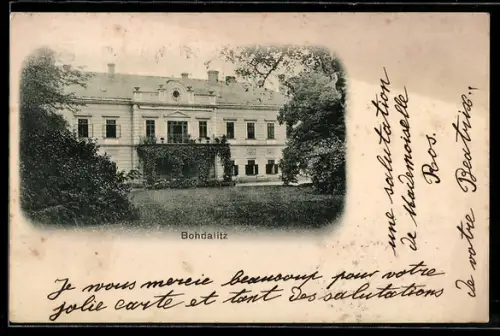 Bohdalitz
Je vous mercie beaucoup pour votre
jolie carte et tant des salutations
de votre Beatrix.
une salutation
de Mademoiselle
Ros.